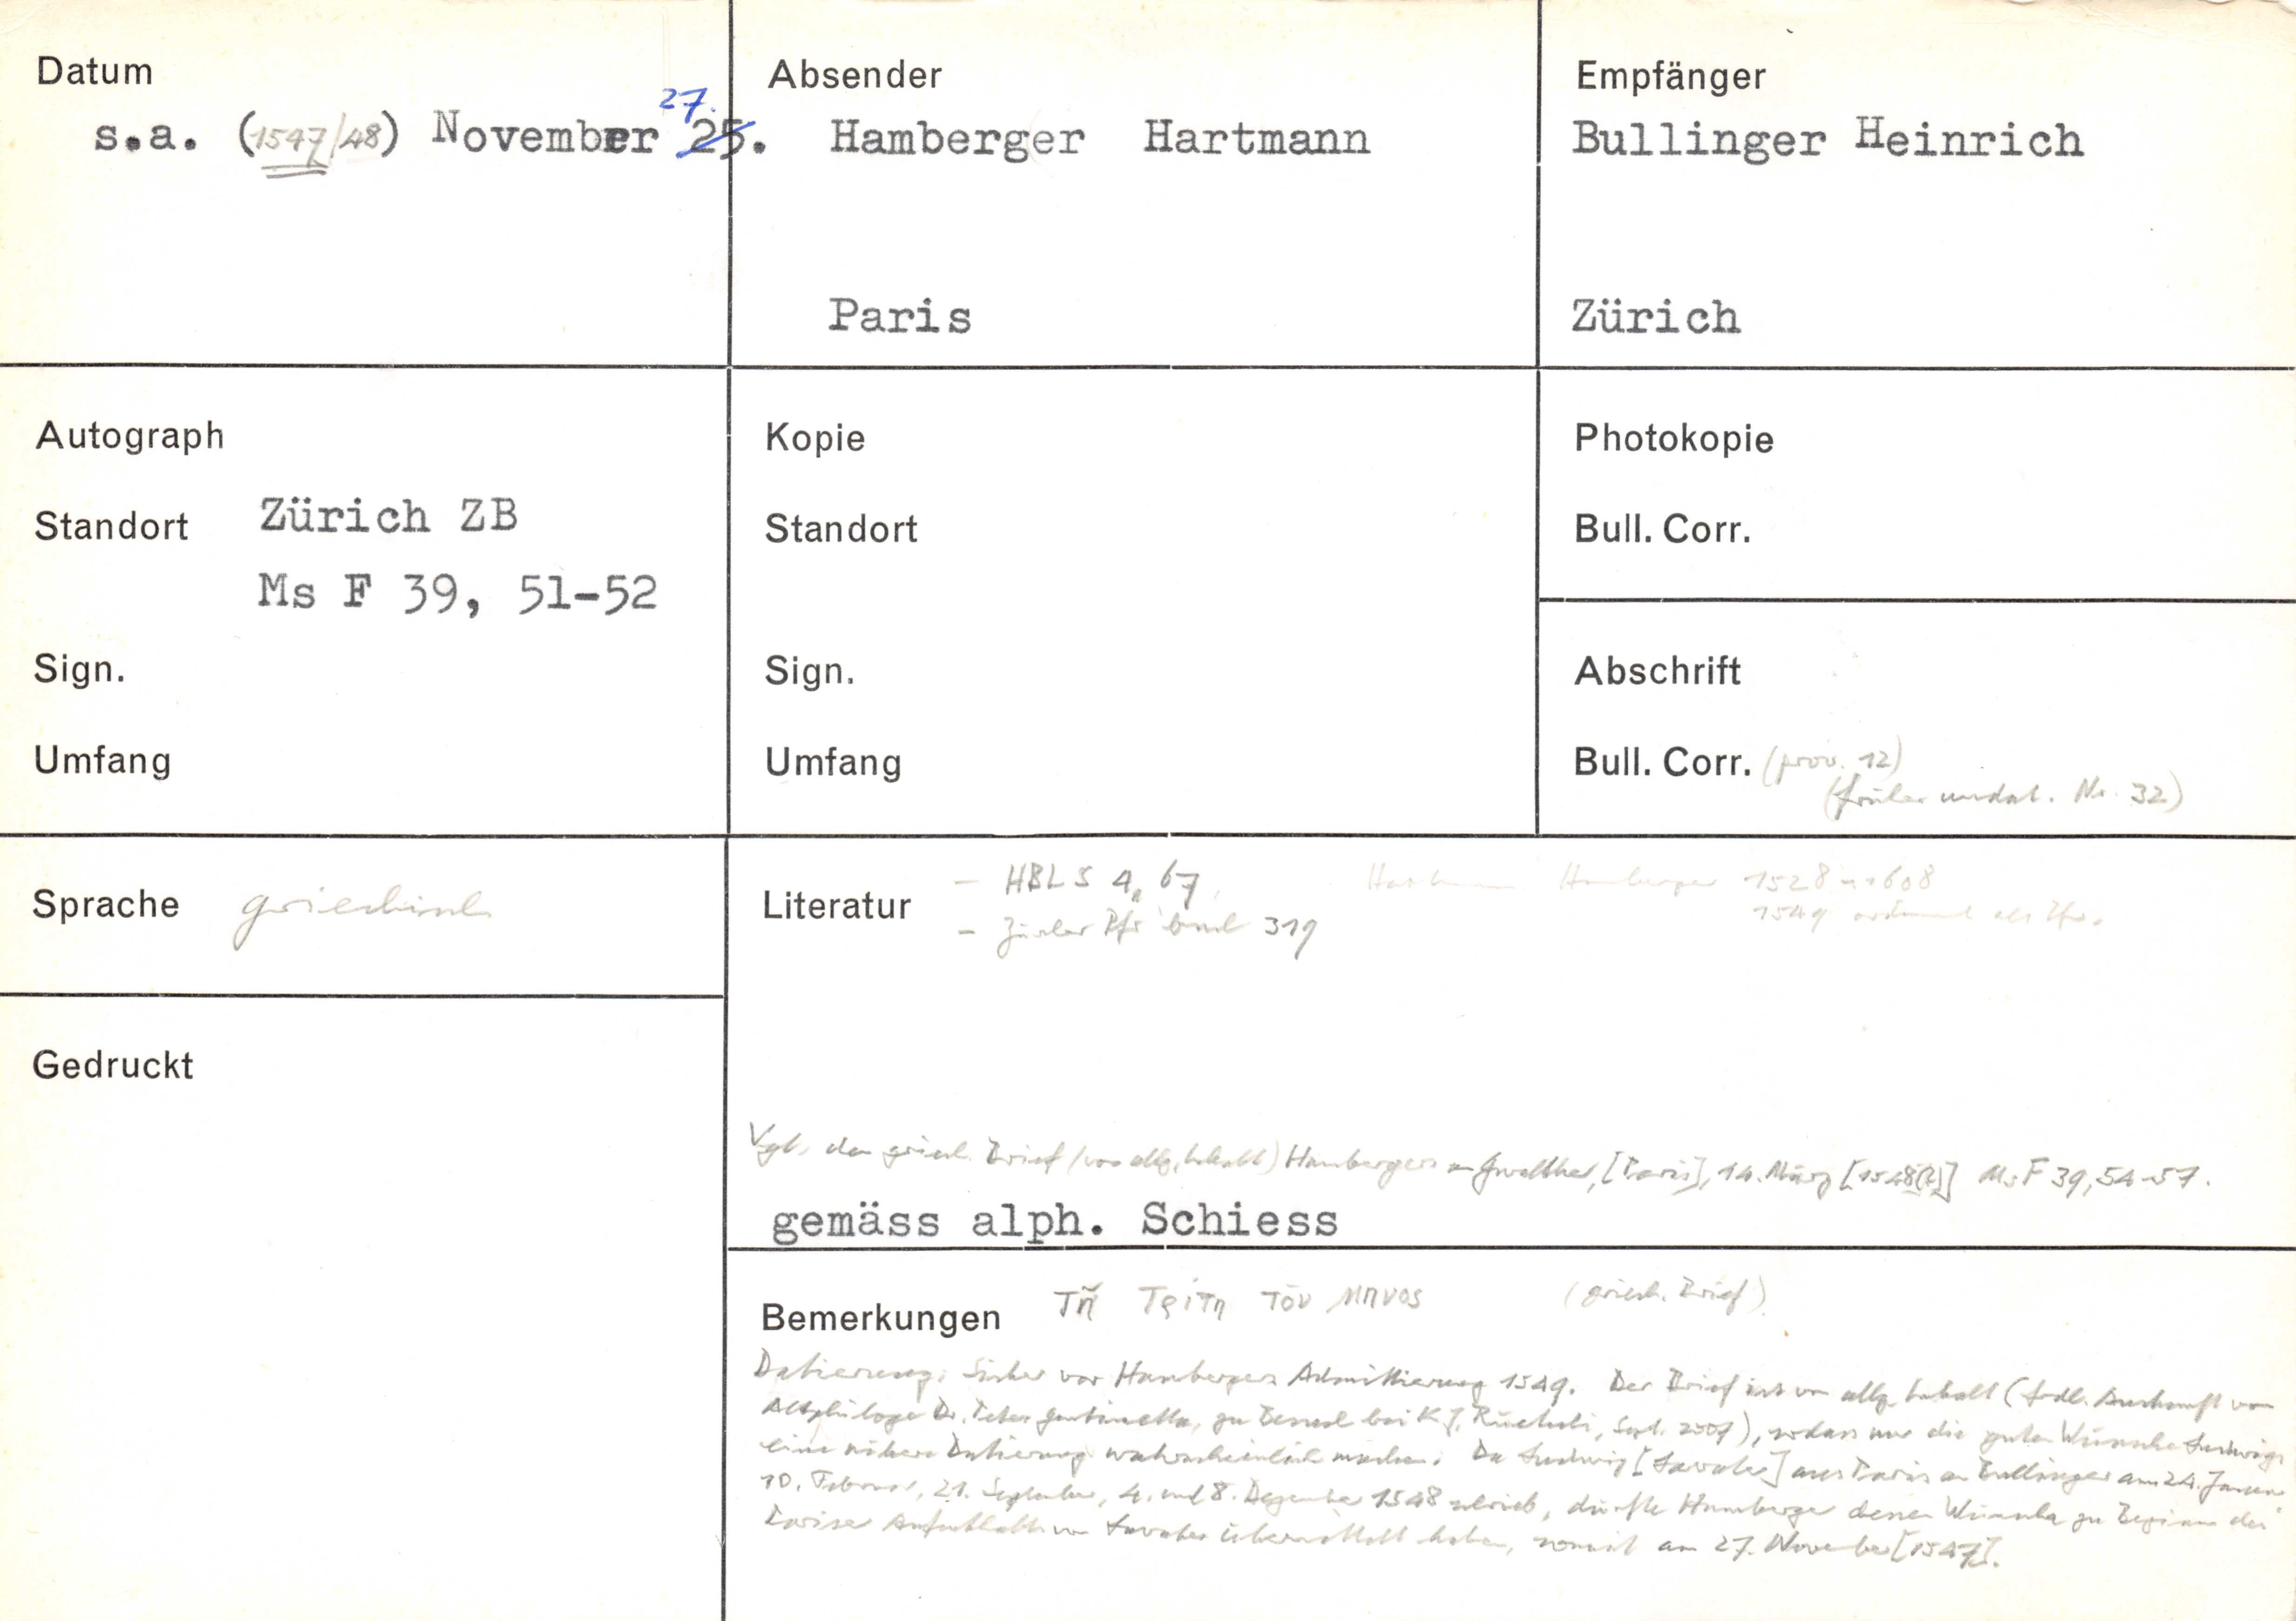 Datum
s.a. (1547/48) November 25. 27.
Absender
Hamberger Hartmann
Paris
Empfänger
Bullinger Heinrich
Zürich
Autograph
Standort Zürich ZB
Ms F 39, 51-52
Sign.
Umfang
Kopie
Standort
Sign.
Umfang
Photokopie
Bull. Corr.
Abschrift
Bull. Corr. (prov. 12)
(früher undat. Nr. 32)
Sprache griechisch
Gedruckt
Literatur – HBLS 4, 67
– Zürcher Pfr buch 319
Hartmann Hamberger 1528–1608
1549 ordiniert als Pfr.
Vgl. den griech. Brief (von allg. Inhalt) Hambergers an Gwalther, [Paris], 14. März [1548(?)] Ms F 39, 54-57.
gemäss alph. Schiess
Bemerkungen Τῆ Τρίτη τοῦ μηνος (griech. Brief)
Datierung: Sicher vor Hambergers Admittierung 1549. Der Brief ist von allg. Inhalt (frdl. Auskunft von
Altphilologe Dr. Peter zu Besuch bei K. J. Rüetschi, Sept. 2007), sodass nur die guten Wünsche Ludwigs
eine nähere Datierung wahrscheinlich machen. Da Ludwig [Lavater] aus Paris an Bullinger am 24. Januar,
10. Februar, 21. September, 4. und 8. Dezember 1548 schrieb, dürfte Hamberger dessen Wünsche zu Beginn des
Pariser Aufenthalts von Lavater übermittelt haben, somit am 27. November [1547].